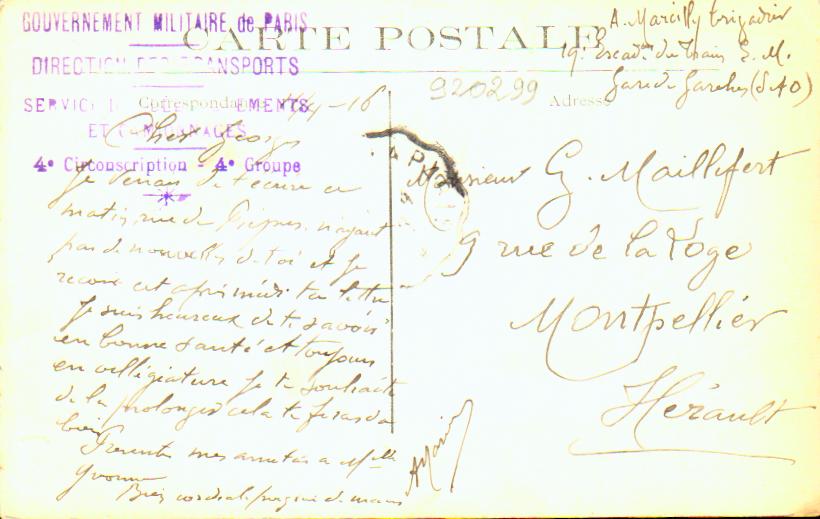 GOUVERNEMENT MILITAIRE de PARIS
DIRECTION DES TRANSPORTS
SERVICE EMENTS
ET
4e Circonscription - 4e Groupe
CARTE POSTALE
Correspondance
Adresse
920299
A. Marcilly brigadier
19e Escadn du train E. M.
Gare de Garches (S&O)
-16
Cher Georges
Je venais de t'écrire ce
matin, rue de n'ayant
pas de nouvelles de toi et je
reçois cet après midi ta lettre
Je suis heureux de te savoir
en bonne santé et toujours
en villégiature je te souhaite
de la prolonger cela te feras du
bien
Présente mes amitiés a Mlle
Yvonne
Bien cordiale poignée de main
Monsieur G. Maillefert
9 rue de la Loge
Montpellier
Hérault